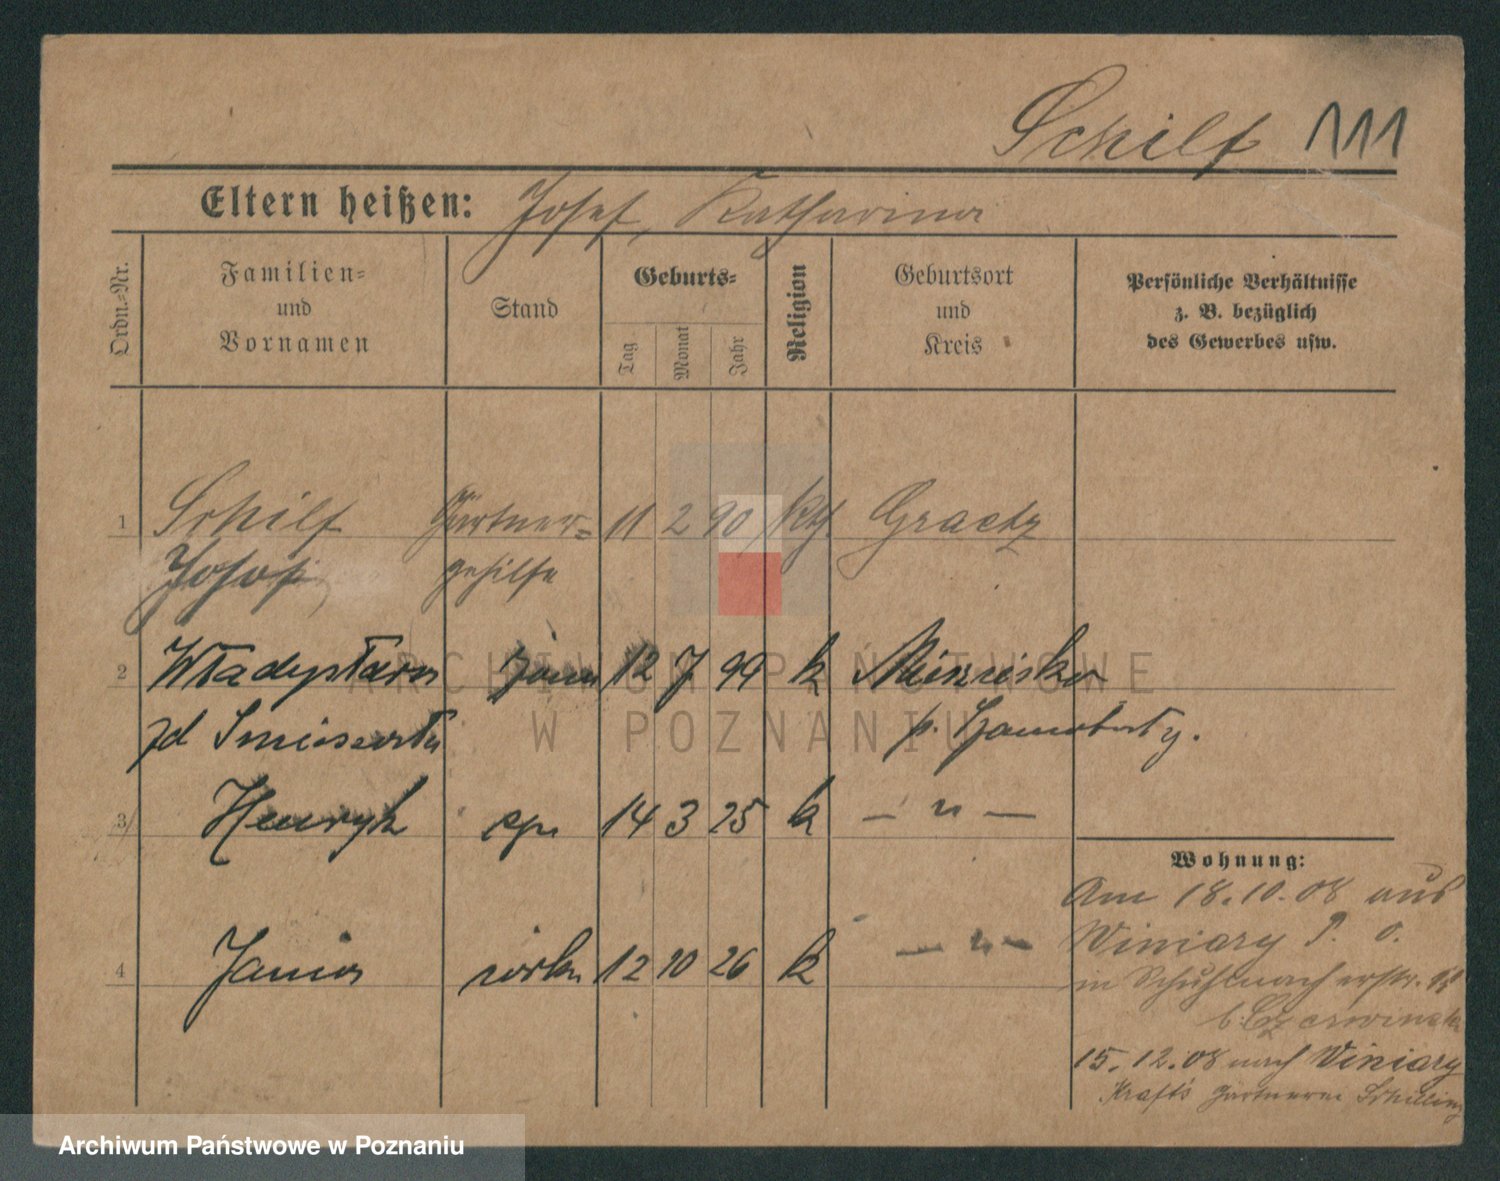 Schilf 111
Eltern heißen: Josef, Katharina
Ordn.=Nr.
Familien=
und
Vornamen
Stand
Geburts=
Tag
Monat
Jahr
Religion
Geburtsort
und
Kreis
Persönliche Verhältnisse
z. B. bezüglich
des Gewerbes usw.
1 Schilf Gärtner= 11 2 90 kth. Graetz
Josef gehilfe
2 Władysława żona 12 7 99 k
zd
3 Henryk syn 14 3 25 k — " —
4 Janina córka 12 10 26 k — " —
Wohnung:
Am 18.10.08 aus
Winiary P. O.
in Schuhmacherstr.
b. Czerwinska
15.12.08 nach Winiary
Krafts Gärtnerei Schilling
ARCHIWUM PAŃSTWOWE
W POZNANIU
Archiwum Państwowe w Poznaniu